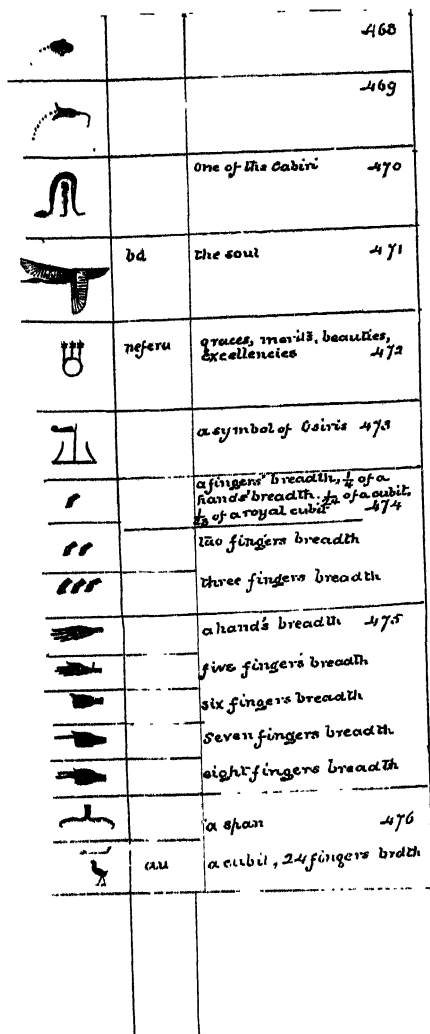 468
469
one of the Cabiri 470
ba the soul 471
neferu graces, merits, beauties,
excellencies 472
a symbol of Osiris 473
a fingers' breadth, ¼ of a
hands' breadth, 1/24 of a cubit,
1/28 of a royal cubit 474
two fingers breadth
three fingers breadth
a hand's breadth 475
five fingers' breadth
six fingers breadth
seven fingers breadth
eight fingers breadth
a span 476
au a cubit, 24 fingers brdth